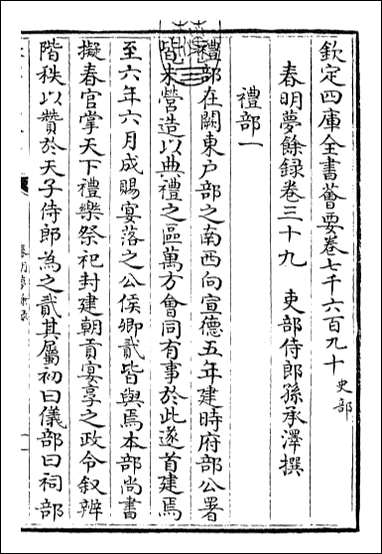 欽定四庫全書薈要卷七千六百九十 史部
春明夢餘録卷三十九 吏部侍郎孫承澤撰
禮部一
禮部在闕東户部之南西向宣德五年建時府部公署
皆未營造以典禮之區萬方會同有事於此遂首建焉
至六年六月成賜宴落之公侯卿貳皆與焉本部尚書
擬春官掌天下禮樂祭祀封建朝貢宴享之政令叙辨
階秩以贊於天子侍郎為之貳其屬初曰儀部曰祠部
春明夢餘録